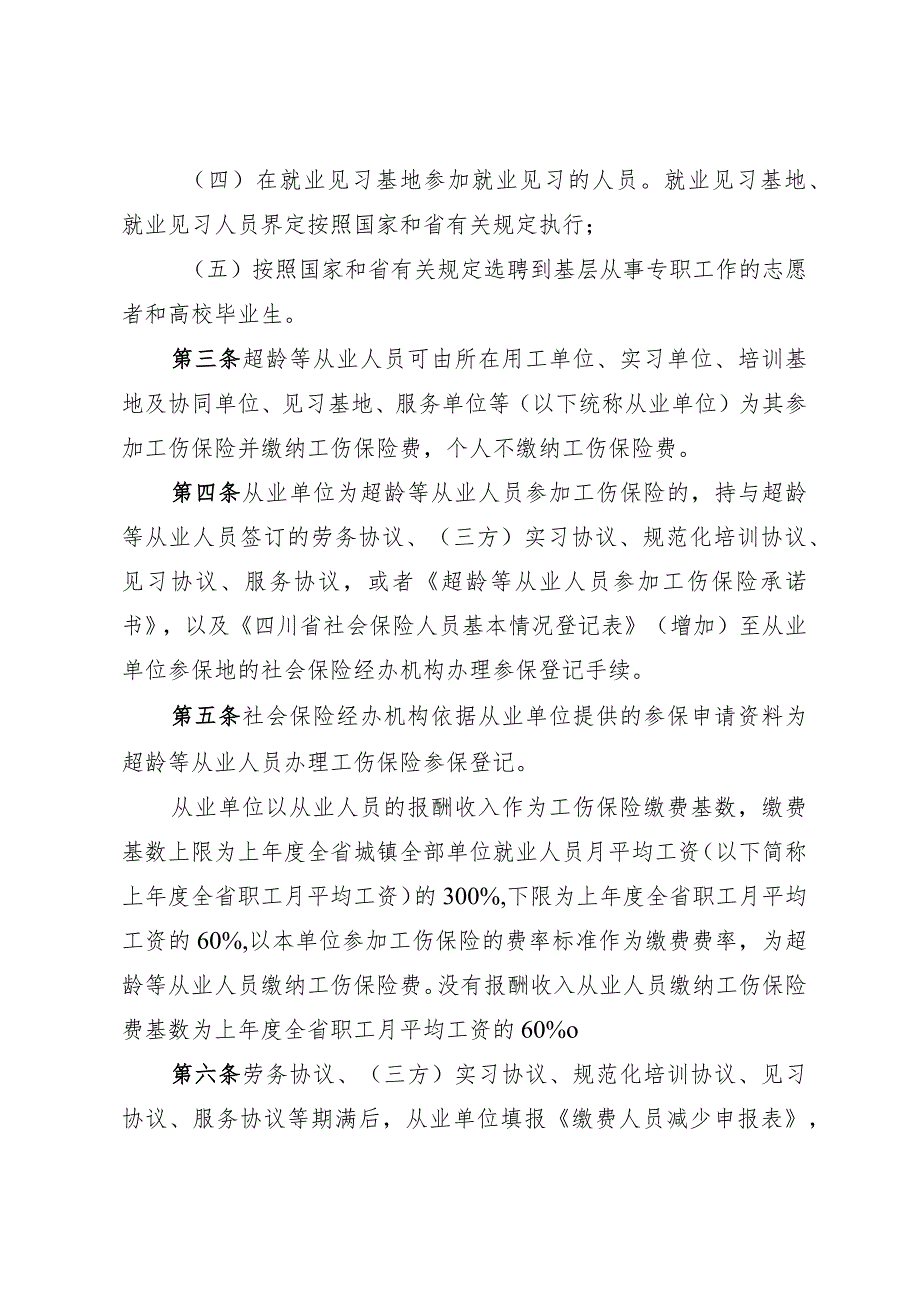 （四）在就业见习基地参加就业见习的人员。就业见习基地、
就业见习人员界定按照国家和省有关规定执行；
（五）按照国家和省有关规定选聘到基层从事专职工作的志愿
者和高校毕业生。
第三条超龄等从业人员可由所在用工单位、实习单位、培训基
地及协同单位、见习基地、服务单位等（以下统称从业单位）为其参
加工伤保险并缴纳工伤保险费，个人不缴纳工伤保险费。
第四条从业单位为超龄等从业人员参加工伤保险的，持与超龄
等从业人员签订的劳务协议、（三方）实习协议、规范化培训协议、
见习协议、服务协议，或者《超龄等从业人员参加工伤保险承诺
书》，以及《四川省社会保险人员基本情况登记表》（增加）至从业
单位参保地的社会保险经办机构办理参保登记手续。
第五条社会保险经办机构依据从业单位提供的参保申请资料为
超龄等从业人员办理工伤保险参保登记。
从业单位以从业人员的报酬收入作为工伤保险缴费基数，缴费
基数上限为上年度全省城镇全部单位就业人员月平均工资（以下简称
上年度全省职工月平均工资）的300%,下限为上年度全省职工月平均
工资的60%,以本单位参加工伤保险的费率标准作为缴费费率，为超
龄等从业人员缴纳工伤保险费。没有报酬收入从业人员缴纳工伤保险
费基数为上年度全省职工月平均工资的60%o
第六条劳务协议、（三方）实习协议、规范化培训协议、见习
协议、服务协议等期满后，从业单位填报《缴费人员减少申报表》，